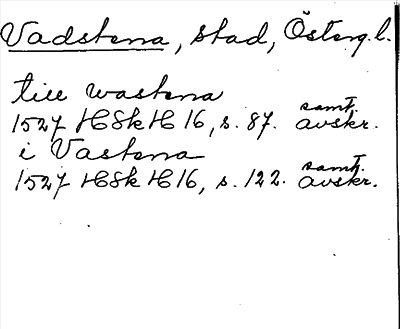 Vadstena, stad, Österg.l.
till wastena
1527 HSkH 16, s. 87. samt. avskr.
i Vastena
1527 HSkH 16, s. 122. samt. avskr.